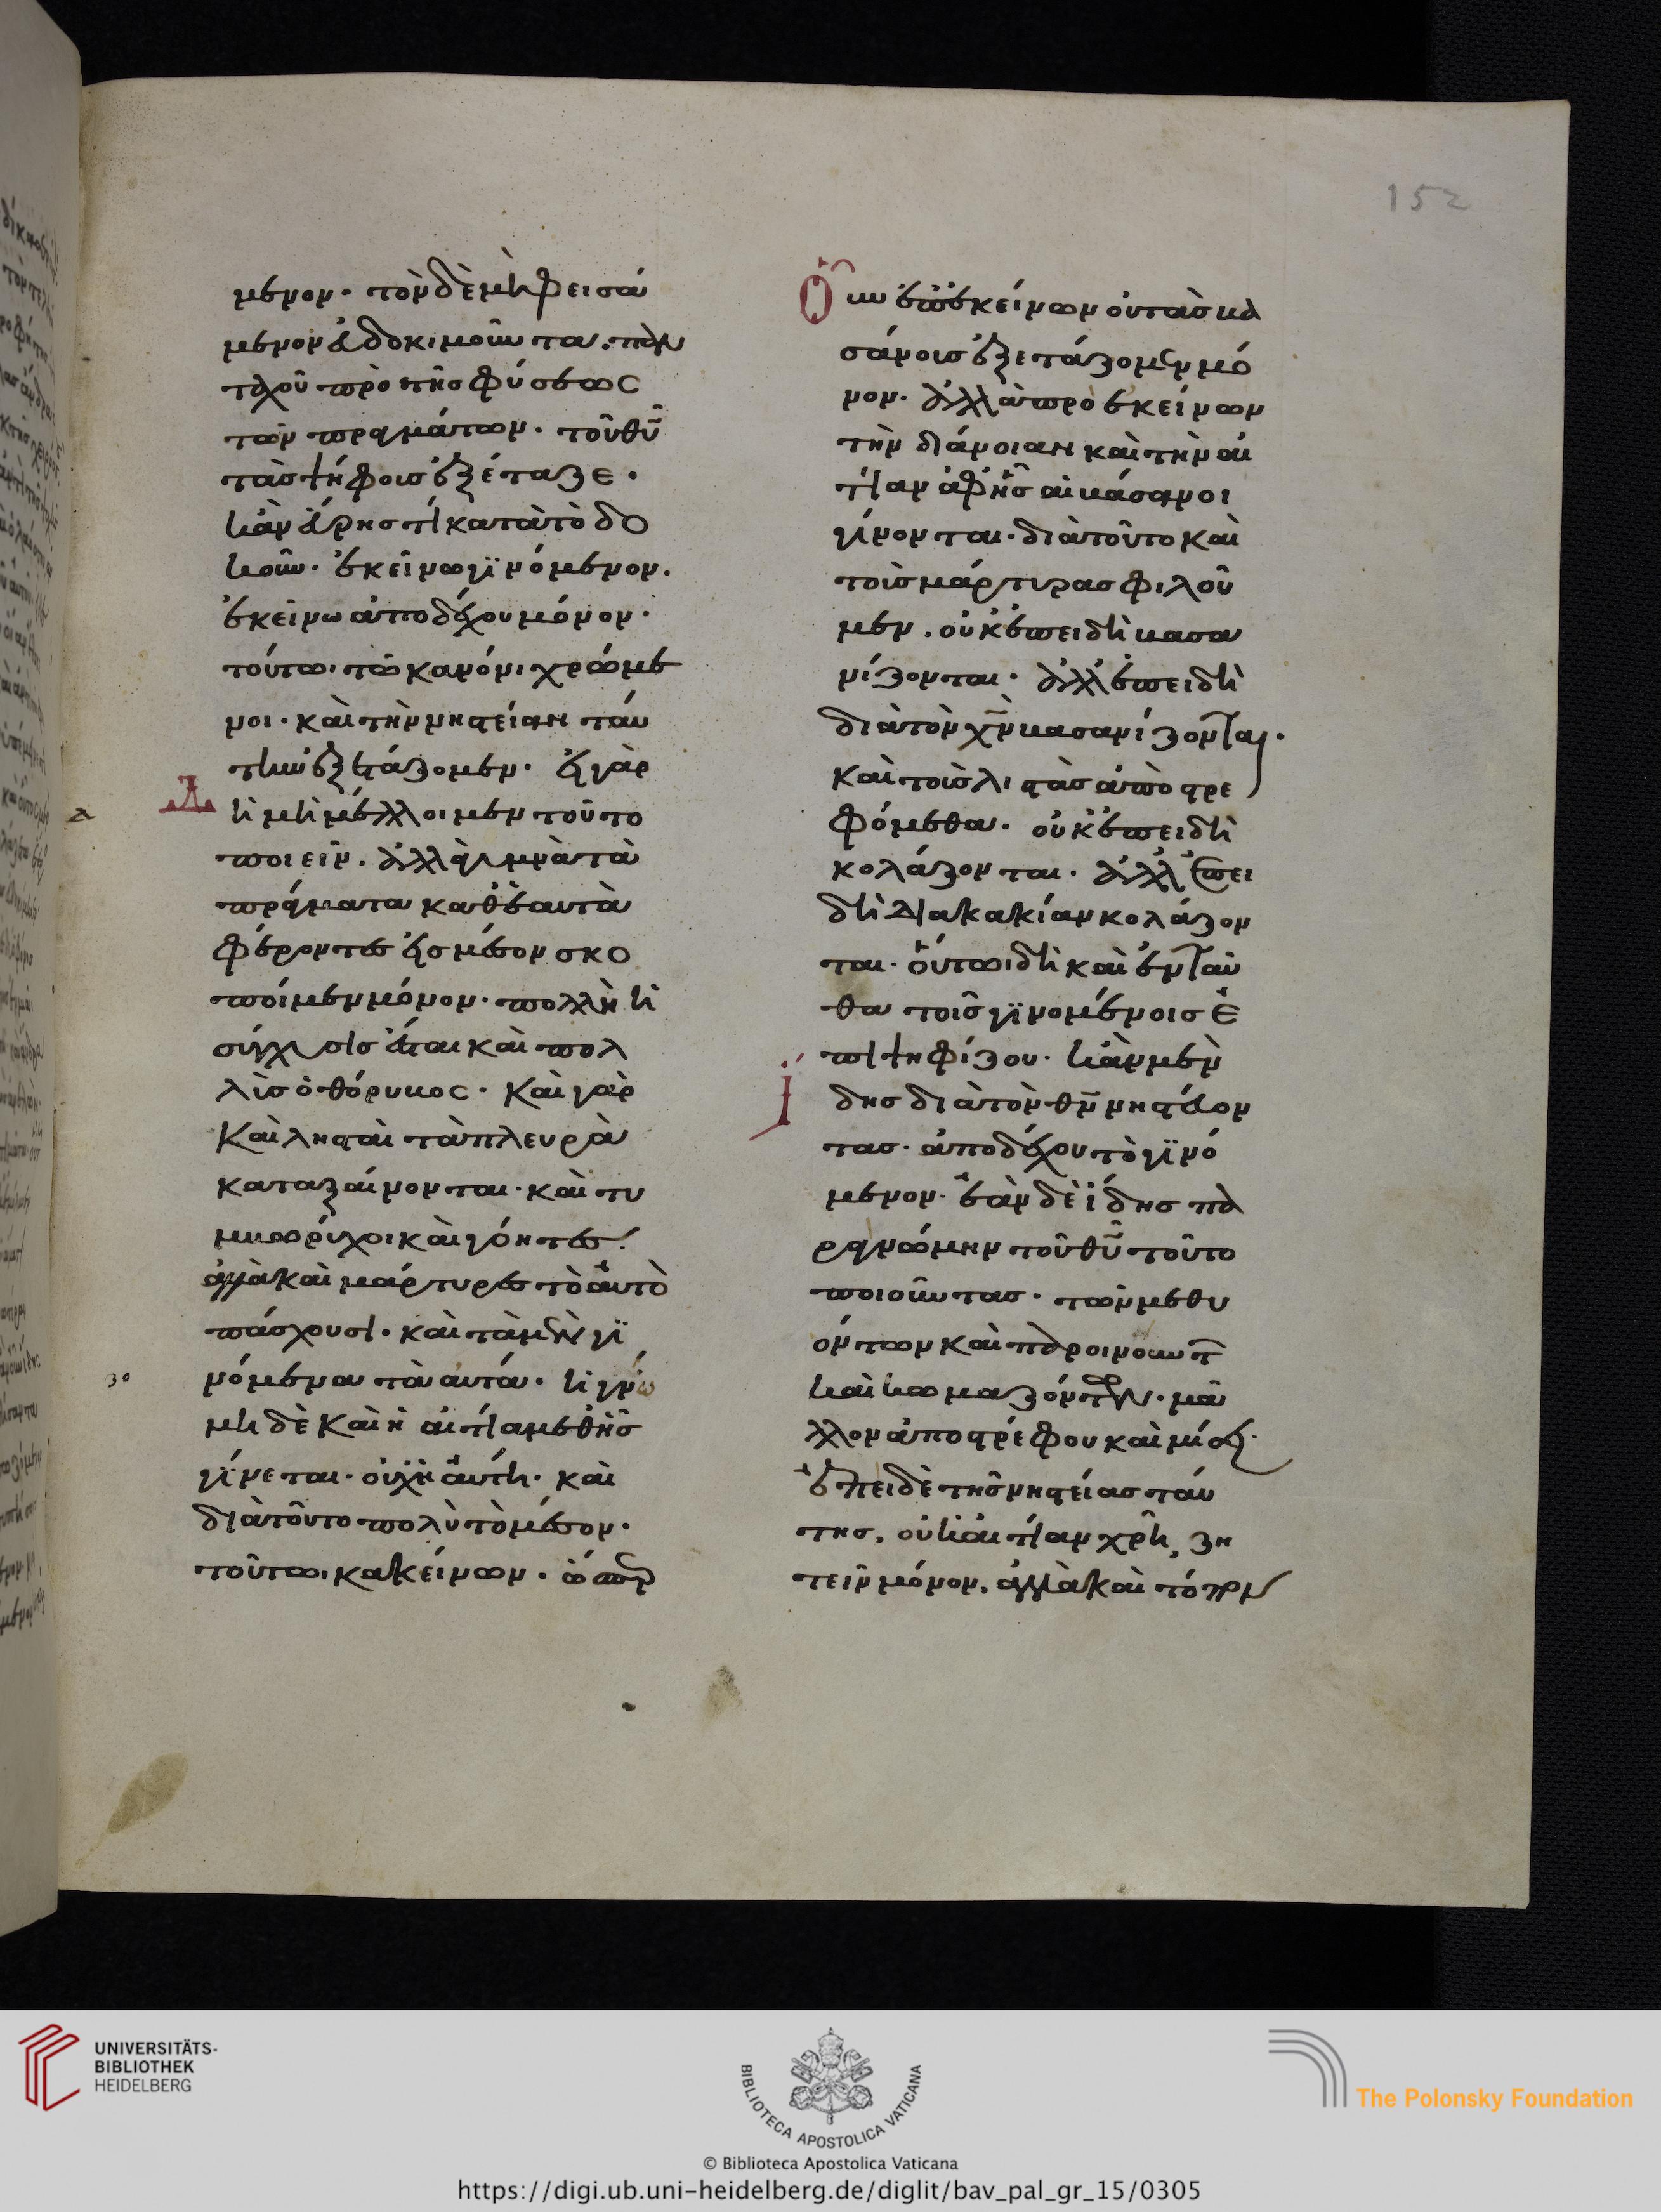 152
μενον· τὸν δὲ μὴ φεισά
μενον εὐδοκιμοῦντα· παν
ταχοῦ πρὸ τῆς φύσεως
τῶν πραγμάτων· τοῦ θῡ
τὰς ψήφους ἐξέταζε·
κἂν εὕρης τί κατὰ τὸ δο
κοῦν· ἐκείνω γϊνόμενον.
ἐκείνω ἀποδέχου μόνον·
τούτωι τῶ κανόνι χρώμε
νοι· καὶ τὴν νηστείαν ταύ
την ἐξετάζομεν· εἰ γὰρ
ἢ μὴ μέλλοιμεν τοῦτο
ποιεῖν. ἀλλὰ γυμνὰ τὰ
πράγματα καθ' ἑαυτὰ
φέροντες εἰς μέσον σκο
ποίμεν μόνον· πολλὴ ἡ
σύγχυσις ἔσται καὶ πολ
λὺς ὁ θόρυβος· Καὶ γὰρ
Καὶ λησταὶ τὰ πλευρὰ
καταξαίνονται· καὶ τυ
μβωρύχοι καὶ γόητες·
ἀλλὰ καὶ μάρτυρες τὸ αὐτὸ
πάσχουσι· καὶ τὰ μὲν γϊ
νόμενα τὰ αὐτά· ἡ γνώ
μη δὲ καὶ ἡ αἰτία μεθ' ἧς
γΐνεται· οὐχ ἡ αὐτή· καὶ
διὰ τοῦτο πολὺ τὸ μέσον·
τούτων κακείνων· ὥσπερ
Οὖν ἐπ' ἐκείνων οὐ τὰς βα
σάνους ἐξετάζομεν μό
νον· ἀλλὰ πρὸ ἐκείνων
τὴν διάνοιαν καὶ τὴν αἰ
τίαν ἀφ' ἧς αἱ βάσανοι
γίνονται· διὰ τοῦτο καὶ
τοὺς μάρτυρας φιλοῦ
μεν. οὐκ ἐπειδὴ βασα
νίζονται· ἀλλ' ἐπειδὴ
διὰ τὸν χν̄ βασανίζονται·
καὶ τοὺς λιστὰς ἀποστρε
φόμεθα· οὐκ ἐπειδὴ
κολάζονται· ἀλλ' ἐπει
δὴ διὰ κακίαν κολάζον
ται· οὕτωι δὴ καὶ ἐνταῦ
θα τοῖς γϊνομένοις ἐ
πιψηφίζου· κἂν μὲν ἴ
δης διὰ τὸν θν̄ νηστεύον
τας· ἀποδέχου τὸ γϊνό
μενον· ἐὰν δὲ ἴδης πα
ρὰ γνώμην τοῦ θῡ τοῦτο
ποιοῦντας· τῶν μεθυ
όντων καὶ παροινούντ
καὶ κωμαζόντων· μᾶ
λλον ἀποστρέφου καὶ μίσει·
ἐπεὶ δὲ τῆς νηστείας ταύ
της, οὐ κ' αἰτίαν χρὴ, ζη
τεῖν μόνον, ἀλλὰ καὶ τόπον
UNIVERSITÄTS-
BIBLIOTHEK
HEIDELBERG
BIBLIOTECA APOSTOLICA VATICANA
The Polonsky Foundation
© Biblioteca Apostolica Vaticana
https://digi.ub.uni-heidelberg.de/diglit/bav_pal_gr_15/0305